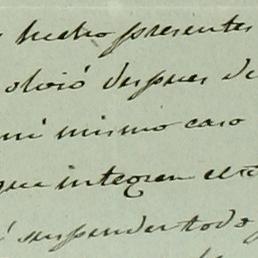 hecho presente
olvió despues de
mi mismo caso
que integran el
suspender todo